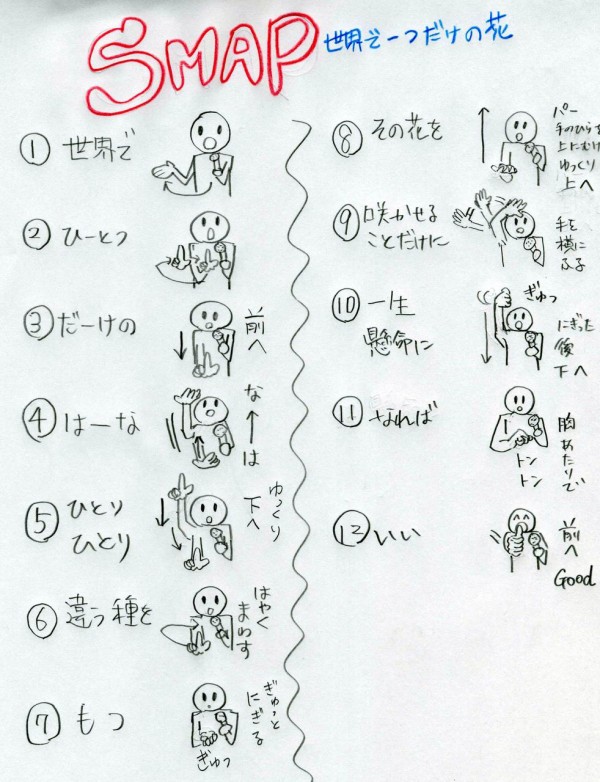 SMAP 世界で一つだけの花
① 世界で
② ひーとつ
③ だーけの
前へ
④ はーな
な
は
⑤ ひとり
ひとり
ゆっくり
下へ
⑥ 違う種を
はやく
まわす
⑦ もつ
ぎゅっと
にぎる
ぎゅっ
⑧ その花を
パー
手のひらを
上にむけ
ゆっくり
上へ
⑨ 咲かせる
ことだけに
手を
横に
ふる
⑩ 一生
懸命に
ぎゅっ
にぎった
後
下へ
⑪ なれば
胸あたりで
トン
トン
⑫ いい
前へ
Good